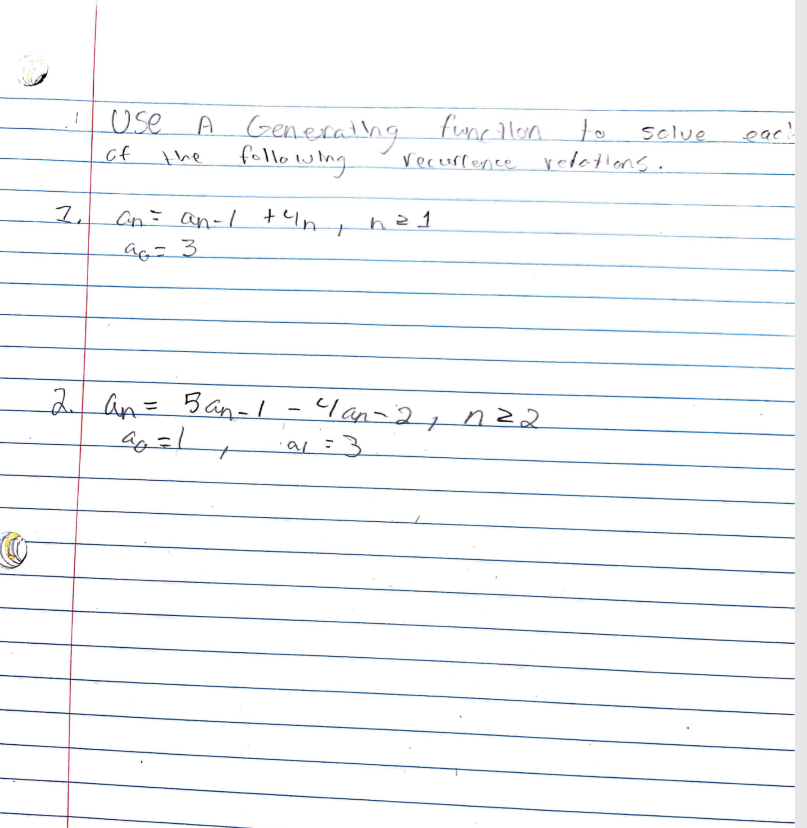 1 Use A Generating function to solve each
of the following recurrence relations.
1. an = an-1 + 4n, n ≥ 1
a0 = 3
2. an = 5an-1 - 4an-2, n ≥ 2
a0 = 1, a1 = 3